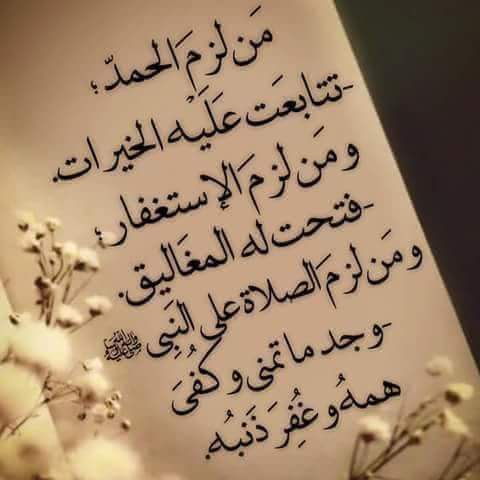 مَن لزمَ الحمدّ ؛
-تتابعَت عَلَيْه الخيرات.
ومَن لزمَ الإستغفار ؛
-فتحت له المغَاليق.
ومَن لزمَ الصلاة على النَبِي ﷺ
-وجد ما تمنى وكفُىَ
همهُ وغُفِرَ ذَنبُه.